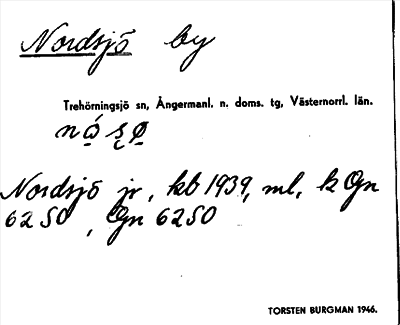 Nordsjö by
Trehörningsjö sn, Ångermanl. n. doms. tg, Västernorrl. län.
Nordsjö jr, kb 1939, ml, k Gn
6250, Gn 6250
TORSTEN BURGMAN 1946.